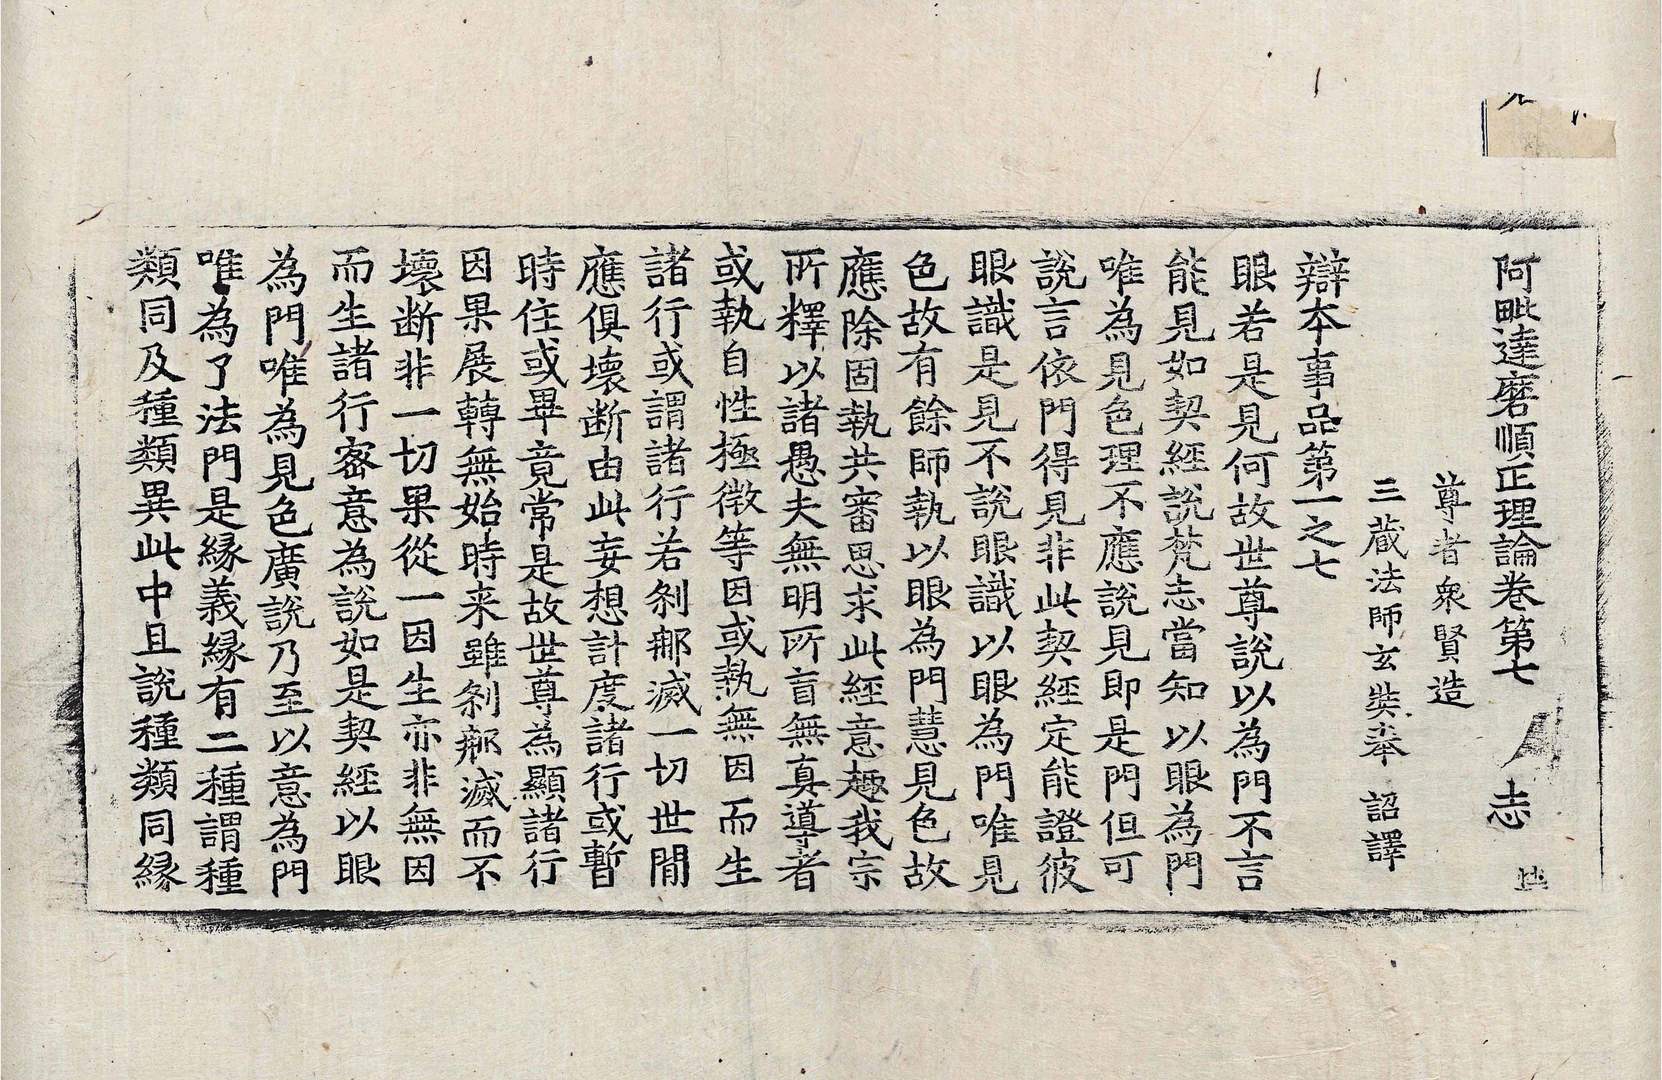 阿毗達磨順正理論卷第七 志
尊者衆賢造
三藏法師玄奘奉 詔譯
辯本事品第一之七
眼若是見何故世尊說以為門不言
能見如契經說梵志當知以眼為門
唯為見色理不應說見即是門但可
說言依門得見非此契經定能證彼
眼識是見不說眼識以眼為門唯見
色故有餘師執以眼為門慧見色故
應除固執共審思求此經意趣我宗
所釋以諸愚夫無明所盲無真導者
或執自性極微等因或執無因而生
諸行或謂諸行若剎那滅一切世間
應俱壞断由此妄想計度諸行或暫
時住或畢竟常是故世尊為顯諸行
因果展轉無始時来雖剎那滅而不
壞断非一切果從一因生亦非無因
而生諸行密意為說如是契經以眼
為門唯為見色廣說乃至以意為門
唯為了法門是縁義縁有二種謂種
類同及種類異此中且說種類同縁